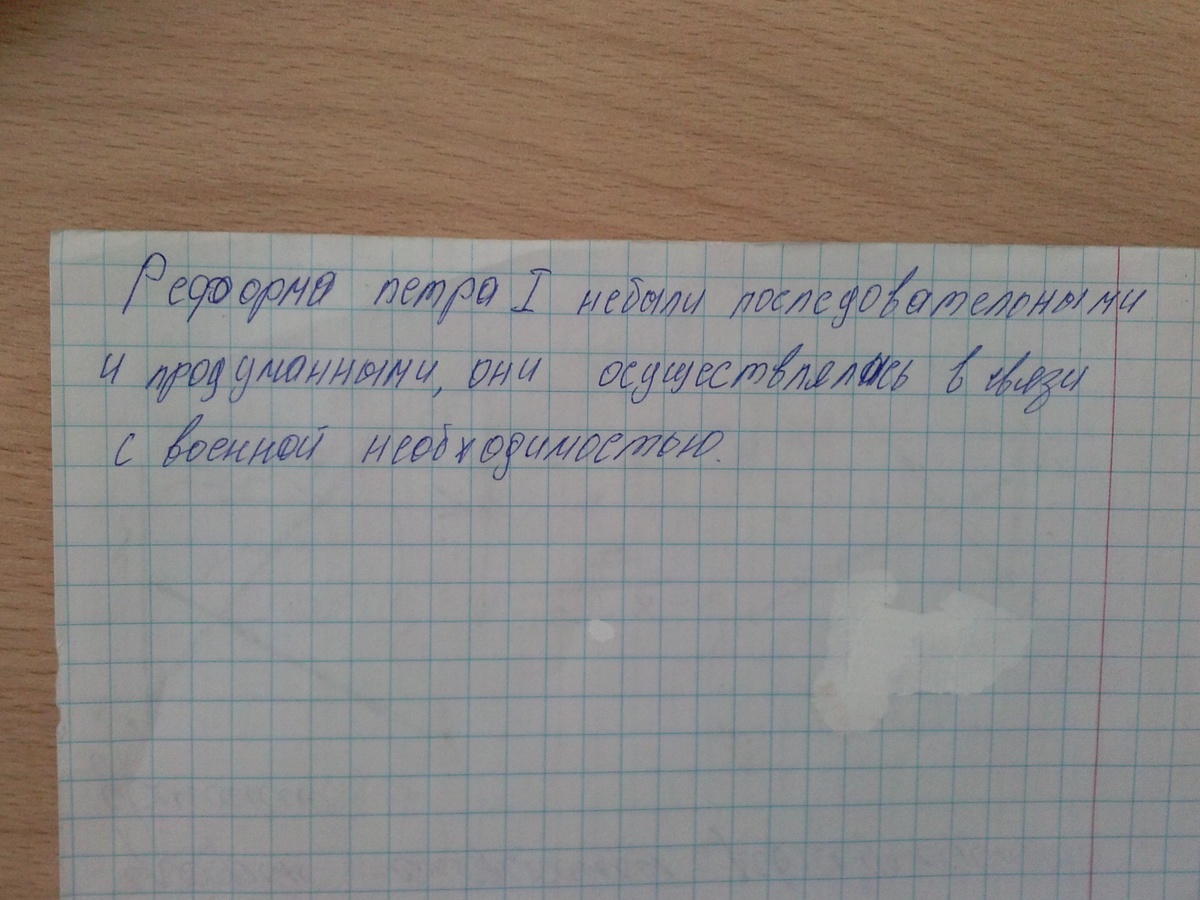 Реформа петра I небыли последовательными
и продуманными, они осуществлялись в связи
с военной необходимостью.